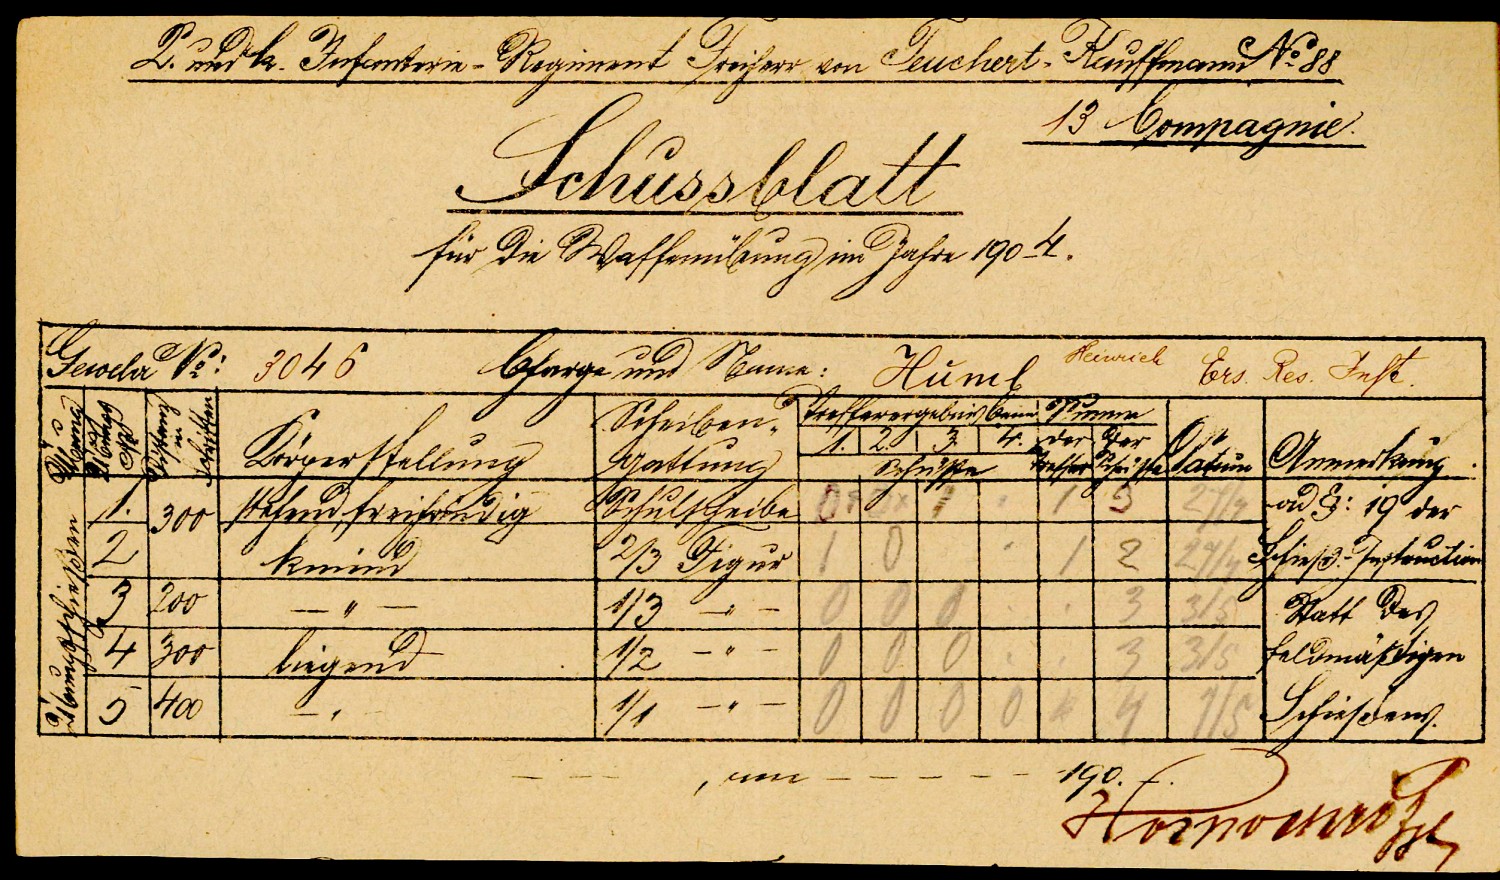 K. und k. Infanterie-Regiment Freiherr von Teuchert-Kauffmann No 88
13 Compagnie.
Schussblatt
für die Waffenübung im Jahre 1904.
Gewehr No: 3046 Charge und Name: Heinrich Ers. Res. Inft.
Distanz in Schritten Körperstellung Scheiben-Gattung Treffergebnis beim Summe Datum Anmerkung
1. 2. 3. 4. der der
Schusse Treffer Schüsse
Übungsschießen
1. 300 stehend freihändig Schulscheibe 1 3 27/4
2 kniend 2/3 Figur 1 0 1 2 27/4
3 200 — " — 1/3 — " — 0 0 0 3 3/5
4 300 liegend 1/2 — " — 0 0 0 3 3/5
5 400 — " — 1/1 — " — 0 0 0 0 4 7/5
ad §: 19 der
Schieß-Instruction
Statt des
feldmäßigen
Schießens.
, am 190